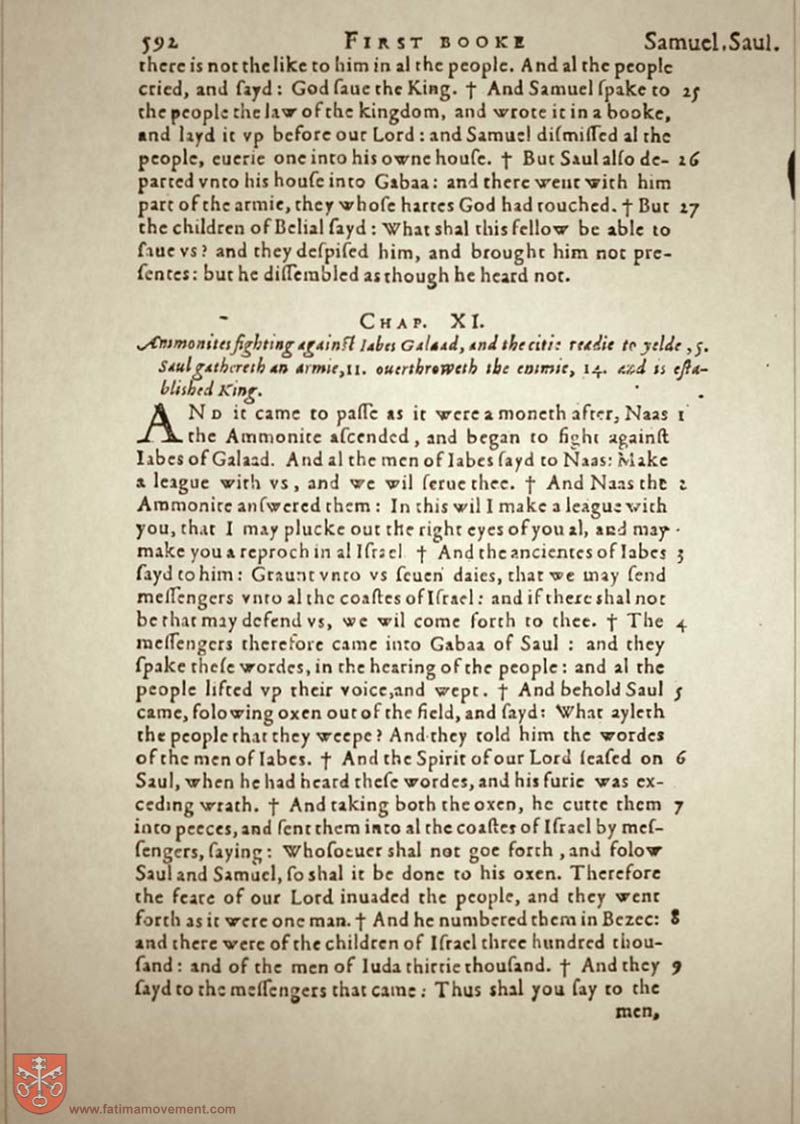 592 FIRST BOOKE Samuel, Saul.
there is not the like to him in al the people. And al the people
cried, and ſayd: God ſaue the King. † And Samuel ſpake to 25
the people the law of the kingdom, and wrote it in a booke,
and layd it vp before our Lord: and Samuel diſmiſſed al the
people, euerie one into his owne houſe. † But Saul alſo de- 26
parted vnto his houſe into Gabaa: and there went with him
part of the armie, they whoſe hartes God had touched. † But 27
the children of Belial ſayd: What shal this fellow be able to
ſaue vs? and they deſpiſed him, and brought him not pre-
ſentes: but he diſſembled as though he heard not.
CHAP. XI.
Ammonites fighting againſt Iabes Galaad, and the citie readie to yelde, 5.
Saul gathereth an armie, 11. ouerthroweth the enimie, 14. and is eſta-
bliſhed King.
AND it came to paſſe as it were a moneth after, Naas 1
the Ammonite aſcended, and began to fight againſt
Iabes of Galaad. And al the men of Iabes ſayd to Naas: Make
a league with vs, and we wil ſerue thee. † And Naas the 2
Ammonite anſwered them: In this wil I make a league with
you, that I may plucke out the right eyes of you al, and may
make you a reproch in al Iſrael † And the ancientes of Iabes 3
ſayd to him: Graunt vnto vs ſeuen daies, that we may ſend
meſſengers vnto al the coaſtes of Iſrael: and if there shal not
be that may defend vs, we wil come forth to thee. † The 4
meſſengers therefore came into Gabaa of Saul : and they
ſpake theſe wordes, in the hearing of the people: and al the
people lifted vp their voice, and wept. † And behold Saul 5
came, folowing oxen out of the field, and ſayd: What ayleth
the people that they weepe? And they told him the wordes
of the men of Iabes. † And the Spirit of our Lord ſeaſed on 6
Saul, when he had heard theſe wordes, and his furie was ex-
ceding wrath. † And taking both the oxen, he cutte them 7
into peeces, and ſent them into al the coaſtes of Iſrael by meſ-
ſengers, ſaying: Whoſoeuer shal not goe forth, and folow
Saul and Samuel, ſo shal it be done to his oxen. Therefore
the feare of our Lord inuaded the people, and they went
forth as it were one man. † And he numbered them in Bezec: 8
and there were of the children of Iſrael three hundred thou-
ſand: and of the men of Iuda thirtie thouſand. † And they 9
ſayd to the meſſengers that came: Thus shal you ſay to the
men,
www.fatimamovement.com